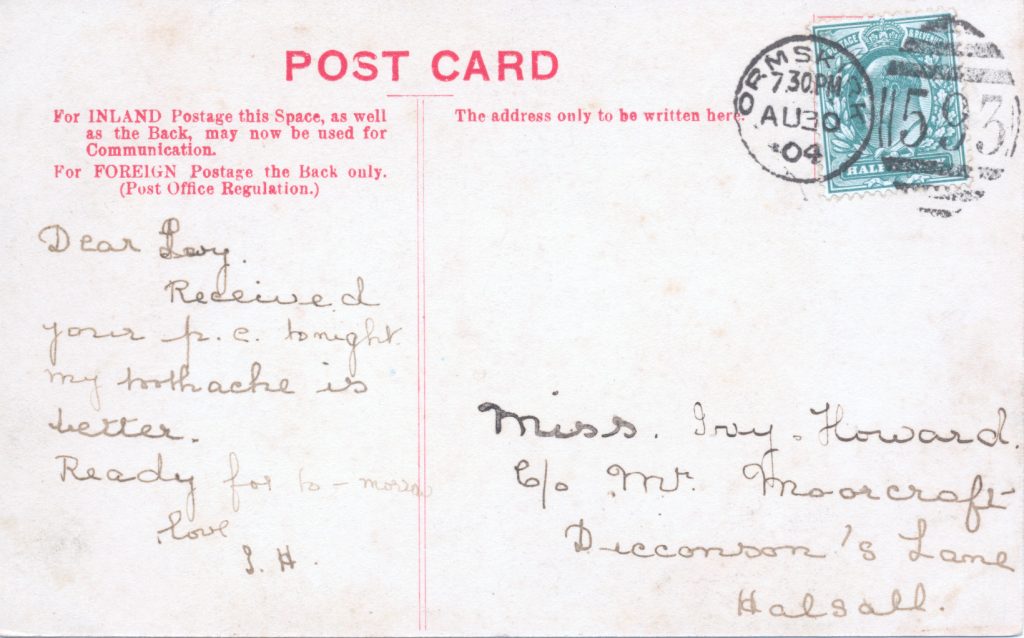 POST CARD
For INLAND Postage this Space, as well
as the Back, may now be used for
Communication.
For FOREIGN Postage the Back only.
(Post Office Regulation.)
The address only to be written here.
ORMSKIRK
7.30.PM
AU30
04
593
POSTAGE & REVENUE
HALF
Dear Ivy.
Received
your p.c. tonight
my toothache is
better.
Ready for to-morrow
love
I. H.
Miss. Ivy. Howard.
C/o Mr. Moorcraft
Dicconson's Lane
Halsall.